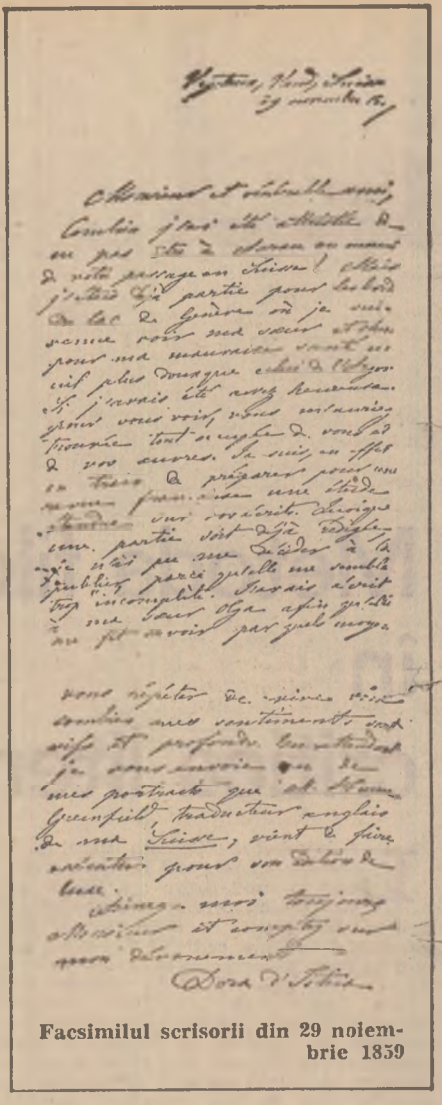 Veytaux, Vaud, Suisse
29 novembre
Monsieur et vénérable ami,
Combien j'ai été attristée de
ne pas être à Aarau au moment
de votre passage en Suisse! Mais
j'étais déjà partie pour les bords
du lac de Genève où je suis
venue voir ma sœur et
pour ma mauvaise santé un
ciel plus doux que celui de l'
Si j'avais été assez heureuse
pour vous voir, vous m'auriez
trouvée tout occupée de vous et
de vos œuvres. Je suis, en effet
en train de préparer pour une
revue française une étude
étendue sur vos écrits. Quoique
une partie soit déjà rédigée,
je n'ai pu me décider à la
publier, parce qu'elle me semble
trop incomplète. J'avais écrit
à ma sœur Olga afin qu'elle
me fit savoir par quels moye
vous répéter de vive voix
combien mes sentiments sont
vifs et profonds. En attendant
je vous envoie un de
mes portraits que M
Greenfield, traducteur anglais
de ma Suisse, vient de faire
exécuter pour son édition de
luxe.
Aimez-moi toujours
Monsieur et comptez sur
mon dévouement
Dora d'Istria
Facsimilul scrisorii din 29 noiem-
brie 1859